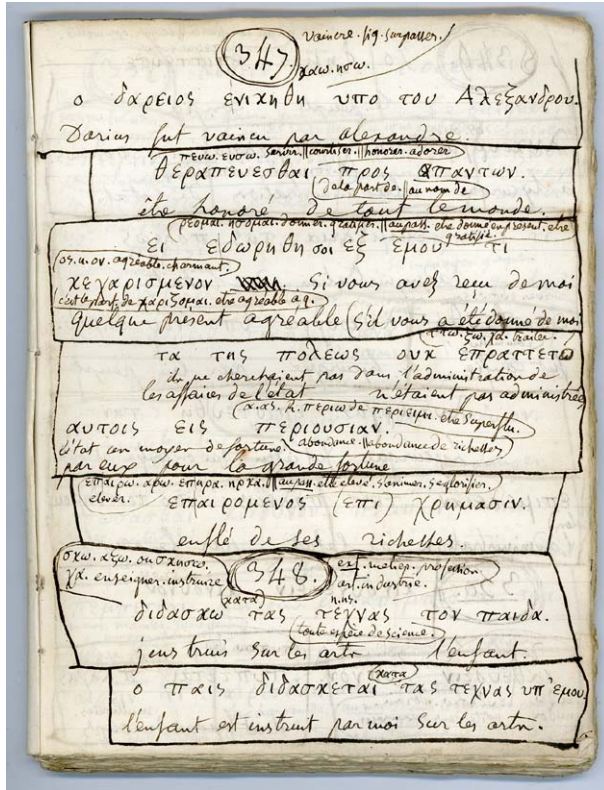 vaincre. fig. surpasser.
347.
χαω. ησω.
ο δαρειος ενιχηθη υπο του Αλεξανδρου.
Darius fut vaincu par alexandre.
πευω. ευσω. servir. || courtiser. || honorer. adorer
θεραπευεσθαι προς απαντων.
de la part de. || au nom de
être honoré de tout le monde.
ρεομαι. ησομαι. donner. gratifier. || au pass. etre donné en present. etre gratifié.
Ει εδωρηθη σοι εξ εμου τι
ος. η. ον. agréable. charmant.
χεχαρισμενον Si vous avez reçu de moi
c'est le part. de χαριζομαι. etre agréable à q.
quelque présent agréable (s'il vous a été donné de moi
ττω. ξω. χα. traiter.
τα της πολεως ουχ επραττετο
ils ne cherchaient pas dans l'administration de
les affaires de l'état n'étaient pas administrées
α. ας. η. περιω de περιειμι. etre superflu.
αυτοις εις περιουσιαν.
l'état un moyen de fortune. abondance. || abondance de richesses
par eux pour la grande fortune
επαιρω. αρω. επηρα. ηρχα. || au pass. etre élevé. s'animer. se glorifier.
elever.
επαιρομενος (επι) χρημασιν.
enflé de ses richesses.
σχω. αξω. ου σχησω.
χα. enseigner. instruire
348.
ης. metier. profession
art. industrie.
(χατα)
διδασχω τας τεχνας τον παιδα.
toute espèce de science.
j'instruis sur les arts l'enfant.
(χατα)
ο παις διδασχεται τας τεχνας υπ' εμου
l'enfant est instruit par moi sur les arts.